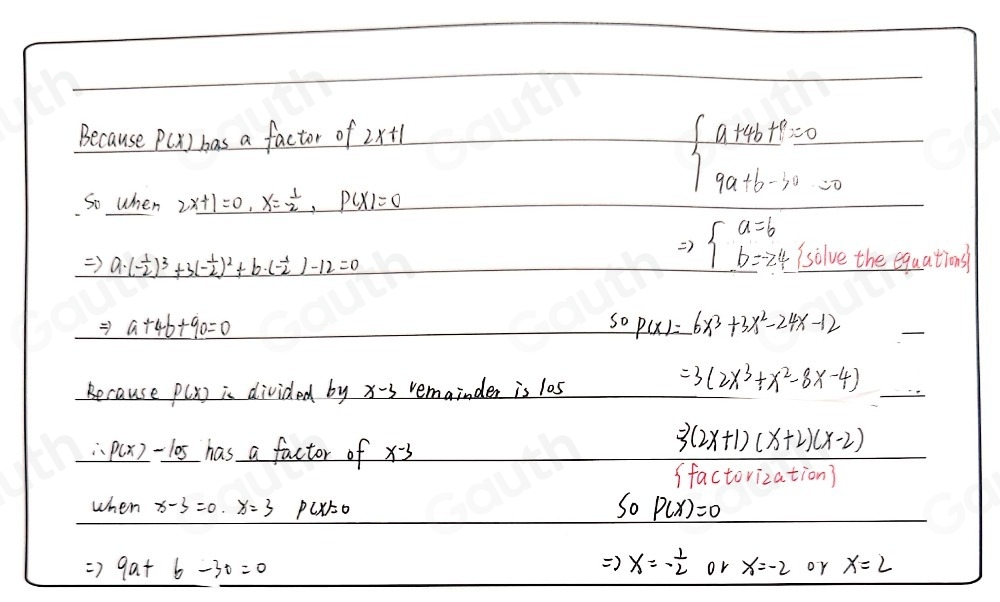 Because P(x) has a factor of 2x+1
So when 2x+1=0, x=½, P(x)=0
=> a·(-½)³+3(-½)²+b·(-½)-12=0
=> a+4b+90=0
Because P(x) is divided by x-3 remainder is 105
∴ P(x)-105 has a factor of x-3
when x-3=0. x=3 P(x)=0
=> 9a+ b -30=0
{ a+4b+9=0
9a+b-30=0
=> { a=6
b=-24 {solve the equations}
So P(x)= 6x³+3x²-24x-12
=3(2x³+x²-8x-4)
3(2x+1)(x+2)(x-2)
{factorization}
So P(x)=0
=> x=-½ or x=-2 or x=2